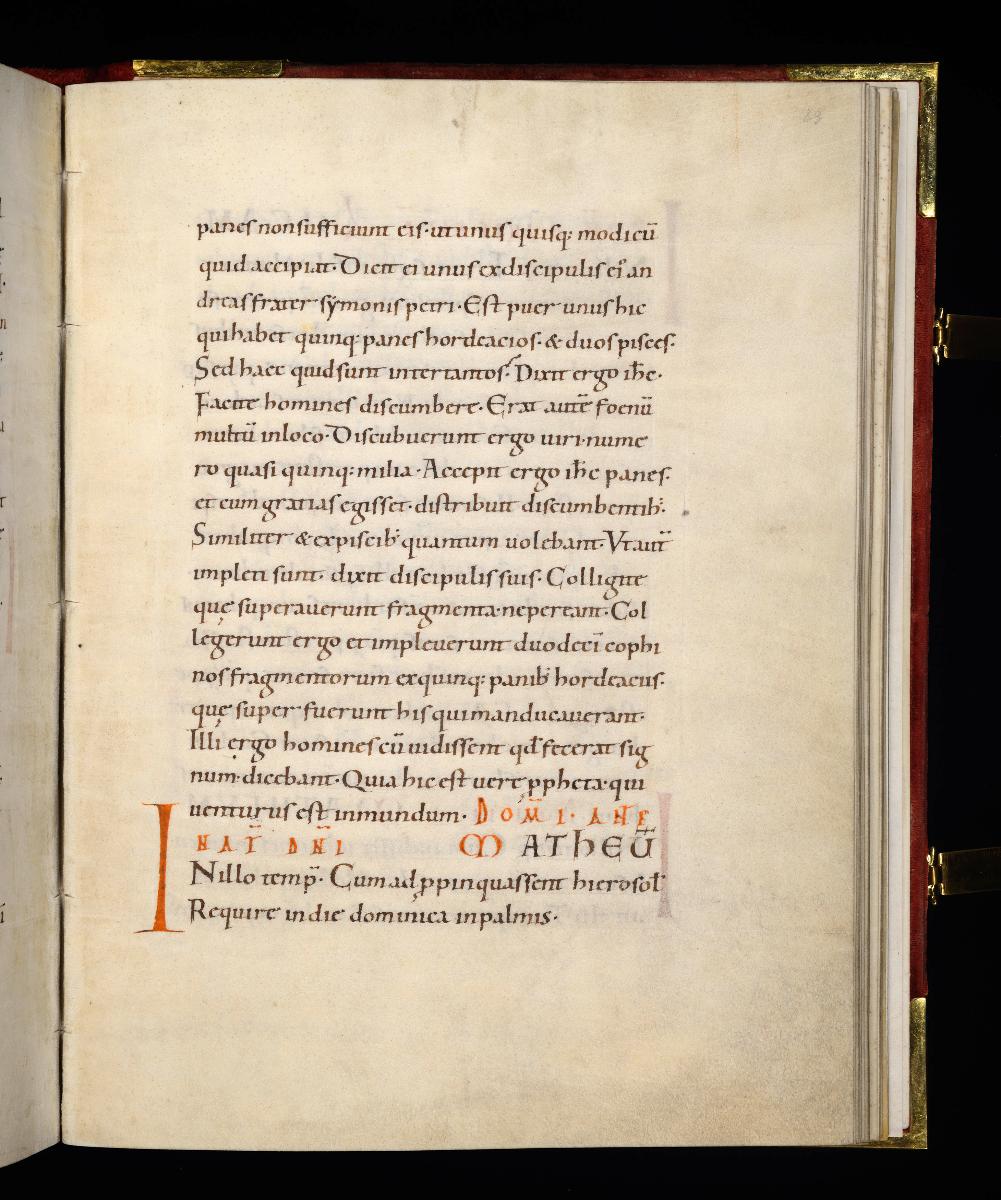 panes non sufficiunt eis· ut unus quisq; modicū
quid accipiat· Dicit ei unus ex discipulis ei᾽ an
dreas frater sẏmonis petri· Est puer unus hic
qui habet quinq; panes hordeacios· & duos pisces·
Sed haec quid sunt inter tantos? Dixit ergo ih̅c·
Facite homines discumbere· Erat autē foenū
multū in loco· Discubuerunt ergo uiri· nume
ro quasi quinq; milia· Accepit ergo ih̅c panes·
et cum gratias egisset· distribuit discumbentib;·
Similiter & ex piscib; quantum uolebant· Vt aut̅
impleti sunt· dixit discipulis suis· Colligite
quę superauerunt fragmenta· ne pereant· Col
legerunt ergo et impleuerunt duodecī cophi
nos fragmentorum ex quinq; panib; hordeaceis·
quę super fuerunt his qui manducauerant·
Illi ergo homines cū uidissent qđ fecerat sig
num· dicebant· Quia hic est uere ꝓpheta· qui
uenturus est in mundum· DOM̅· I· ANE
NAT̅ DN̅I MATHEU̅
INillo temp̅· Cum adꝓpinquassent hierosol̅
Require in die dominica in palmis·
23